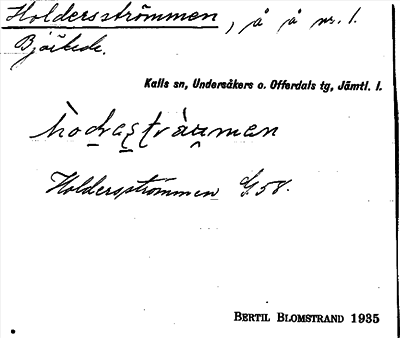 Holdersströmmen, å å nr. 1.
Bjöčkede.
Kalls sn, Undersåkers o. Offerdals tg, Jämtl. l.
Holdersströmmen G. 58.
BERTIL BLOMSTRAND 1935